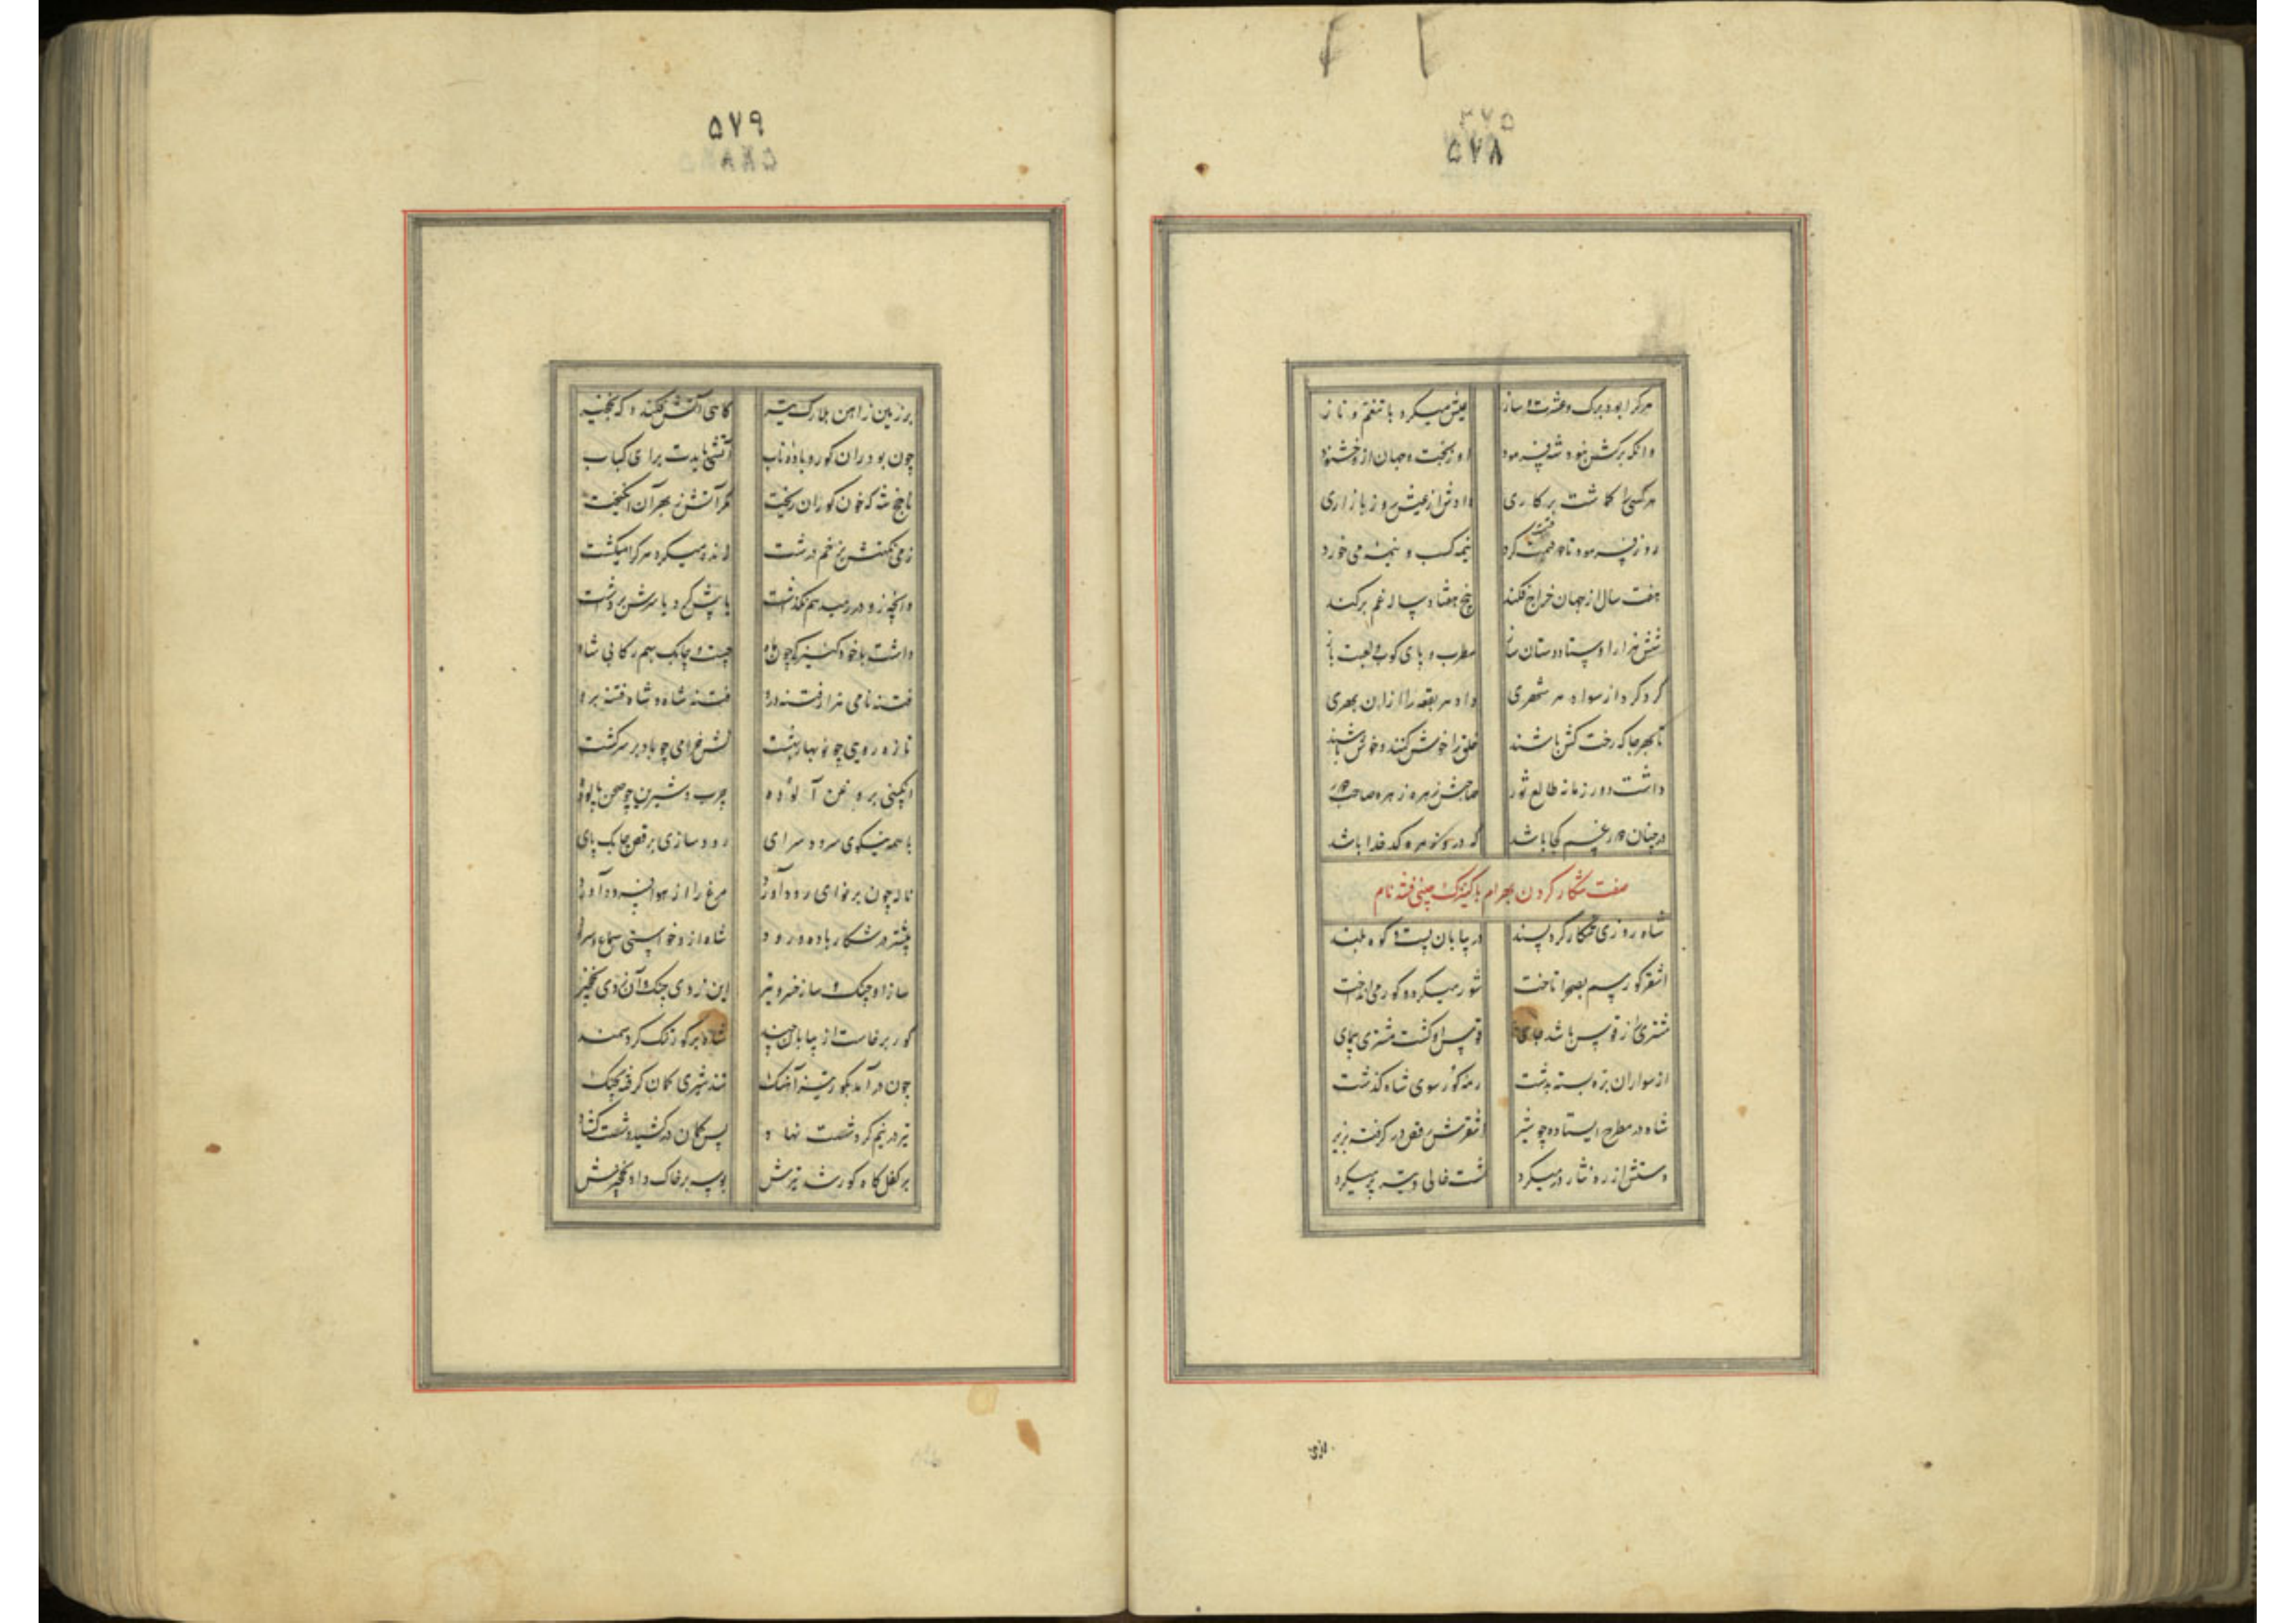 ۳۷۵
۵۷۸
هرکرا بود برک و عشرت و ساز عیش میکرد با تنعم و ناز
وانکه برکش نبود شه فرمود
هرکسی را کماشت بر کاری دادش از عیش روز بازاری
روز فرمود تا دو قسمت کرد نیمه کسب و نیمه می خورد
هفت سال از جهان خراج فکند بیخ هفتاد ساله غم برکند
شش هزار اوستاد دستان ساز مطرب و پای کوب و لعبت باز
کرد کرد از سواد هر شهری داد هر بقعه را ازان بهری
تا بهرجا که رخت کش باشند خلق را خوش کنند و خوش باشند
داشت دور زمانه طالع ثور صاحبش زهره زهره صاحب دور
در چنان دور غم کجا باشد که درو زهره کدخدا باشد
صفت شکار کردن بهرام با کنیزک چینی فتنه نام
شاه روزی شکار کرد پسند در بیابان پست و کوه بلند
اشقر کور سم بصحرا تاخت شور میکرد و کور می انداخت
مشتری را ز قوس باشد جای قوس او کشت مشتری پیمای
از سواران پره بسته بدشت رمه کور سوی شاه کذشت
شاه در مطرح ایستاده چو شیر اشقرش رقص در کرفته بزیر
دستش از زه نثار در میکرد شست خالی و تیر پر میکرد
ازی
۵۷۹
بر زمین ز آهن بلارک تیر کاهی آتش فکند و که نخجیر
چون بود ران کور و باده ناب آتشی بایدت برای کباب
ناچخ شه که خون کوران ریخت مکر آتش ز بهر آن انکیخت
زمی نکهتش بزخم درشت
وانچه زو در رمید هم نکذاشت یا پیش کرد یا سرش برداشت
داشت با خود کنیزکی چون ماه چست و چابک بهم رکابی شاه
فتنه نامی هزار فتنه درو فتنه شاه و شاه فتنه برو
تازه رویی چو نوبهار بهشت کش خرامی چو باد بر سر کشت
انکبینی بروغن آلوده چرب و شیرین چو صحن پالوده
با همه نیکوی سرود سرای رود سازی برقص چابک پای
ناله چون بر نوای رود آورد مرغ را از هوا فرود آورد
بیشتر در شکار و باده و رود شاه ازو خواستی سماع و سرود
ساز او چنک و ساز خسرو تیر این زدی چنک و آن زدی نخجیر
کور برخاست از بیابان چند شاه بر کور تنک کرد سمند
چون در آمد بکور تیز آهنک تند شیری کمان کرفته بچنک
تیر در نیم کرد شست نهاد پس کمان در کشید و شست کشاد
بر کفل کاه کور شد تیرش بوسه بر خاک داد نخجیرش